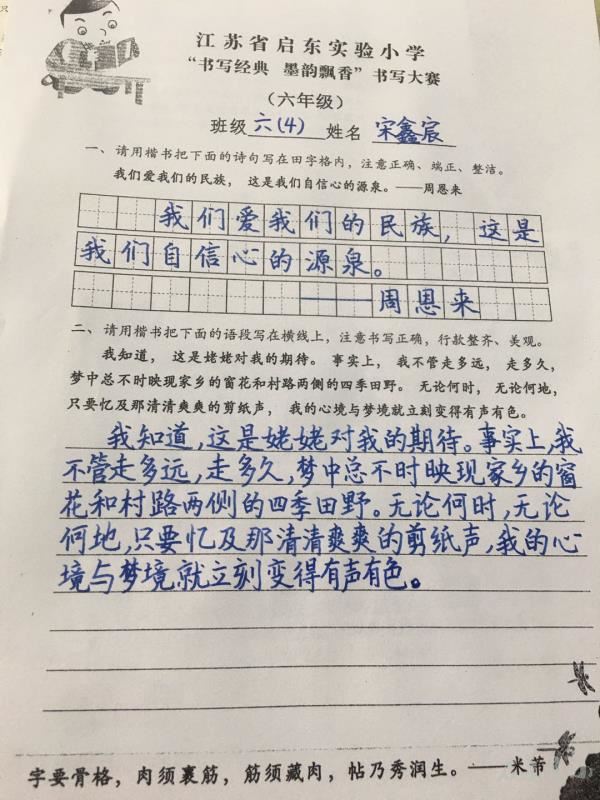 江苏省启东实验小学
“书写经典 墨韵飘香”书写大赛
（六年级）
班级六(4) 姓名 宋鑫宸
一、请用楷书把下面的诗句写在田字格内，注意正确、端正、整洁。
我们爱我们的民族， 这是我们自信心的源泉。——周恩来
我们爱我们的民族，这是
我们自信心的源泉。
——周恩来
二、请用楷书把下面的语段写在横线上，注意书写正确，行款整齐、美观。
我知道， 这是姥姥对我的期待。 事实上， 我不管走多远， 走多久，
梦中总不时映现家乡的窗花和村路两侧的四季田野。 无论何时， 无论何地，
只要忆及那清清爽爽的剪纸声， 我的心境与梦境就立刻变得有声有色。
我知道，这是姥姥对我的期待。事实上，我
不管走多远，走多久，梦中总不时映现家乡的窗
花和村路两侧的四季田野。无论何时，无论
何地，只要忆及那清清爽爽的剪纸声，我的心
境与梦境就立刻变得有声有色。
字要骨格，肉须裹筋，筋须藏肉，帖乃秀润生。——米芾